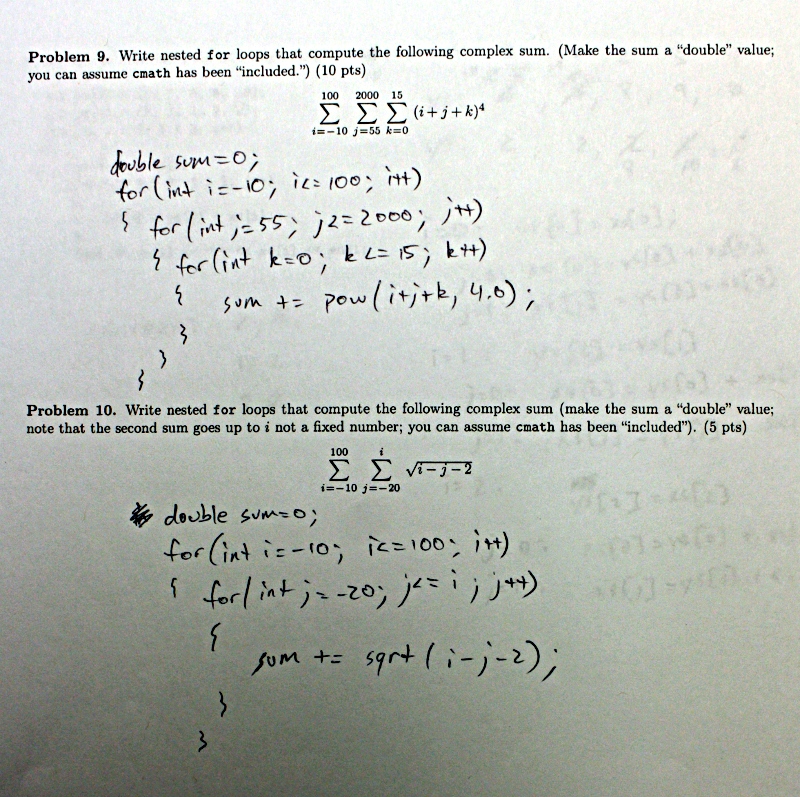 Problem 9. Write nested for loops that compute the following complex sum. (Make the sum a “double” value;
you can assume cmath has been “included.”) (10 pts)
100 2000 15
∑ ∑ ∑ (i+j+k)⁴
i=−10 j=55 k=0
double sum=0;
for(int i=-10; i<=100; i++)
{ for(int j=55; j<=2000; j++)
{ for(int k=0; k<=15; k++)
{ sum += pow(i+j+k, 4.0);
}
}
}
Problem 10. Write nested for loops that compute the following complex sum (make the sum a “double” value;
note that the second sum goes up to i not a fixed number; you can assume cmath has been “included”). (5 pts)
100 i
∑ ∑ √i−j−2
i=−10 j=−20
double sum=0;
for(int i=-10; i<=100; i++)
{ for(int j=-20; j<=i; j++)
{
sum += sqrt(i-j-2);
}
}